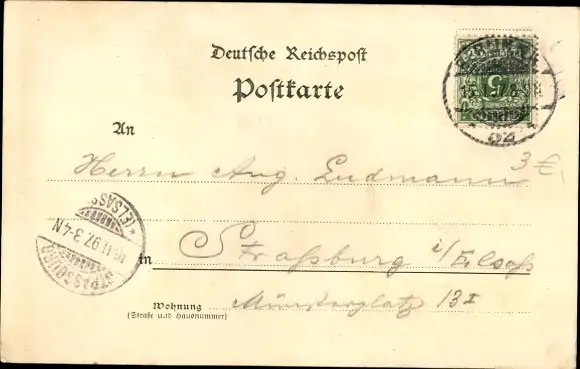 Deutsche Reichspost
Postkarte
An
Herrn Aug. Ludmann
3 €
in Straßburg i/Elsass
Wohnung Münsterplatz 13 I
(Straße und Hausnummer)
STRASSBURG
* (ELSASS) *
16.11.97. 3-4 N
5
BERLIN